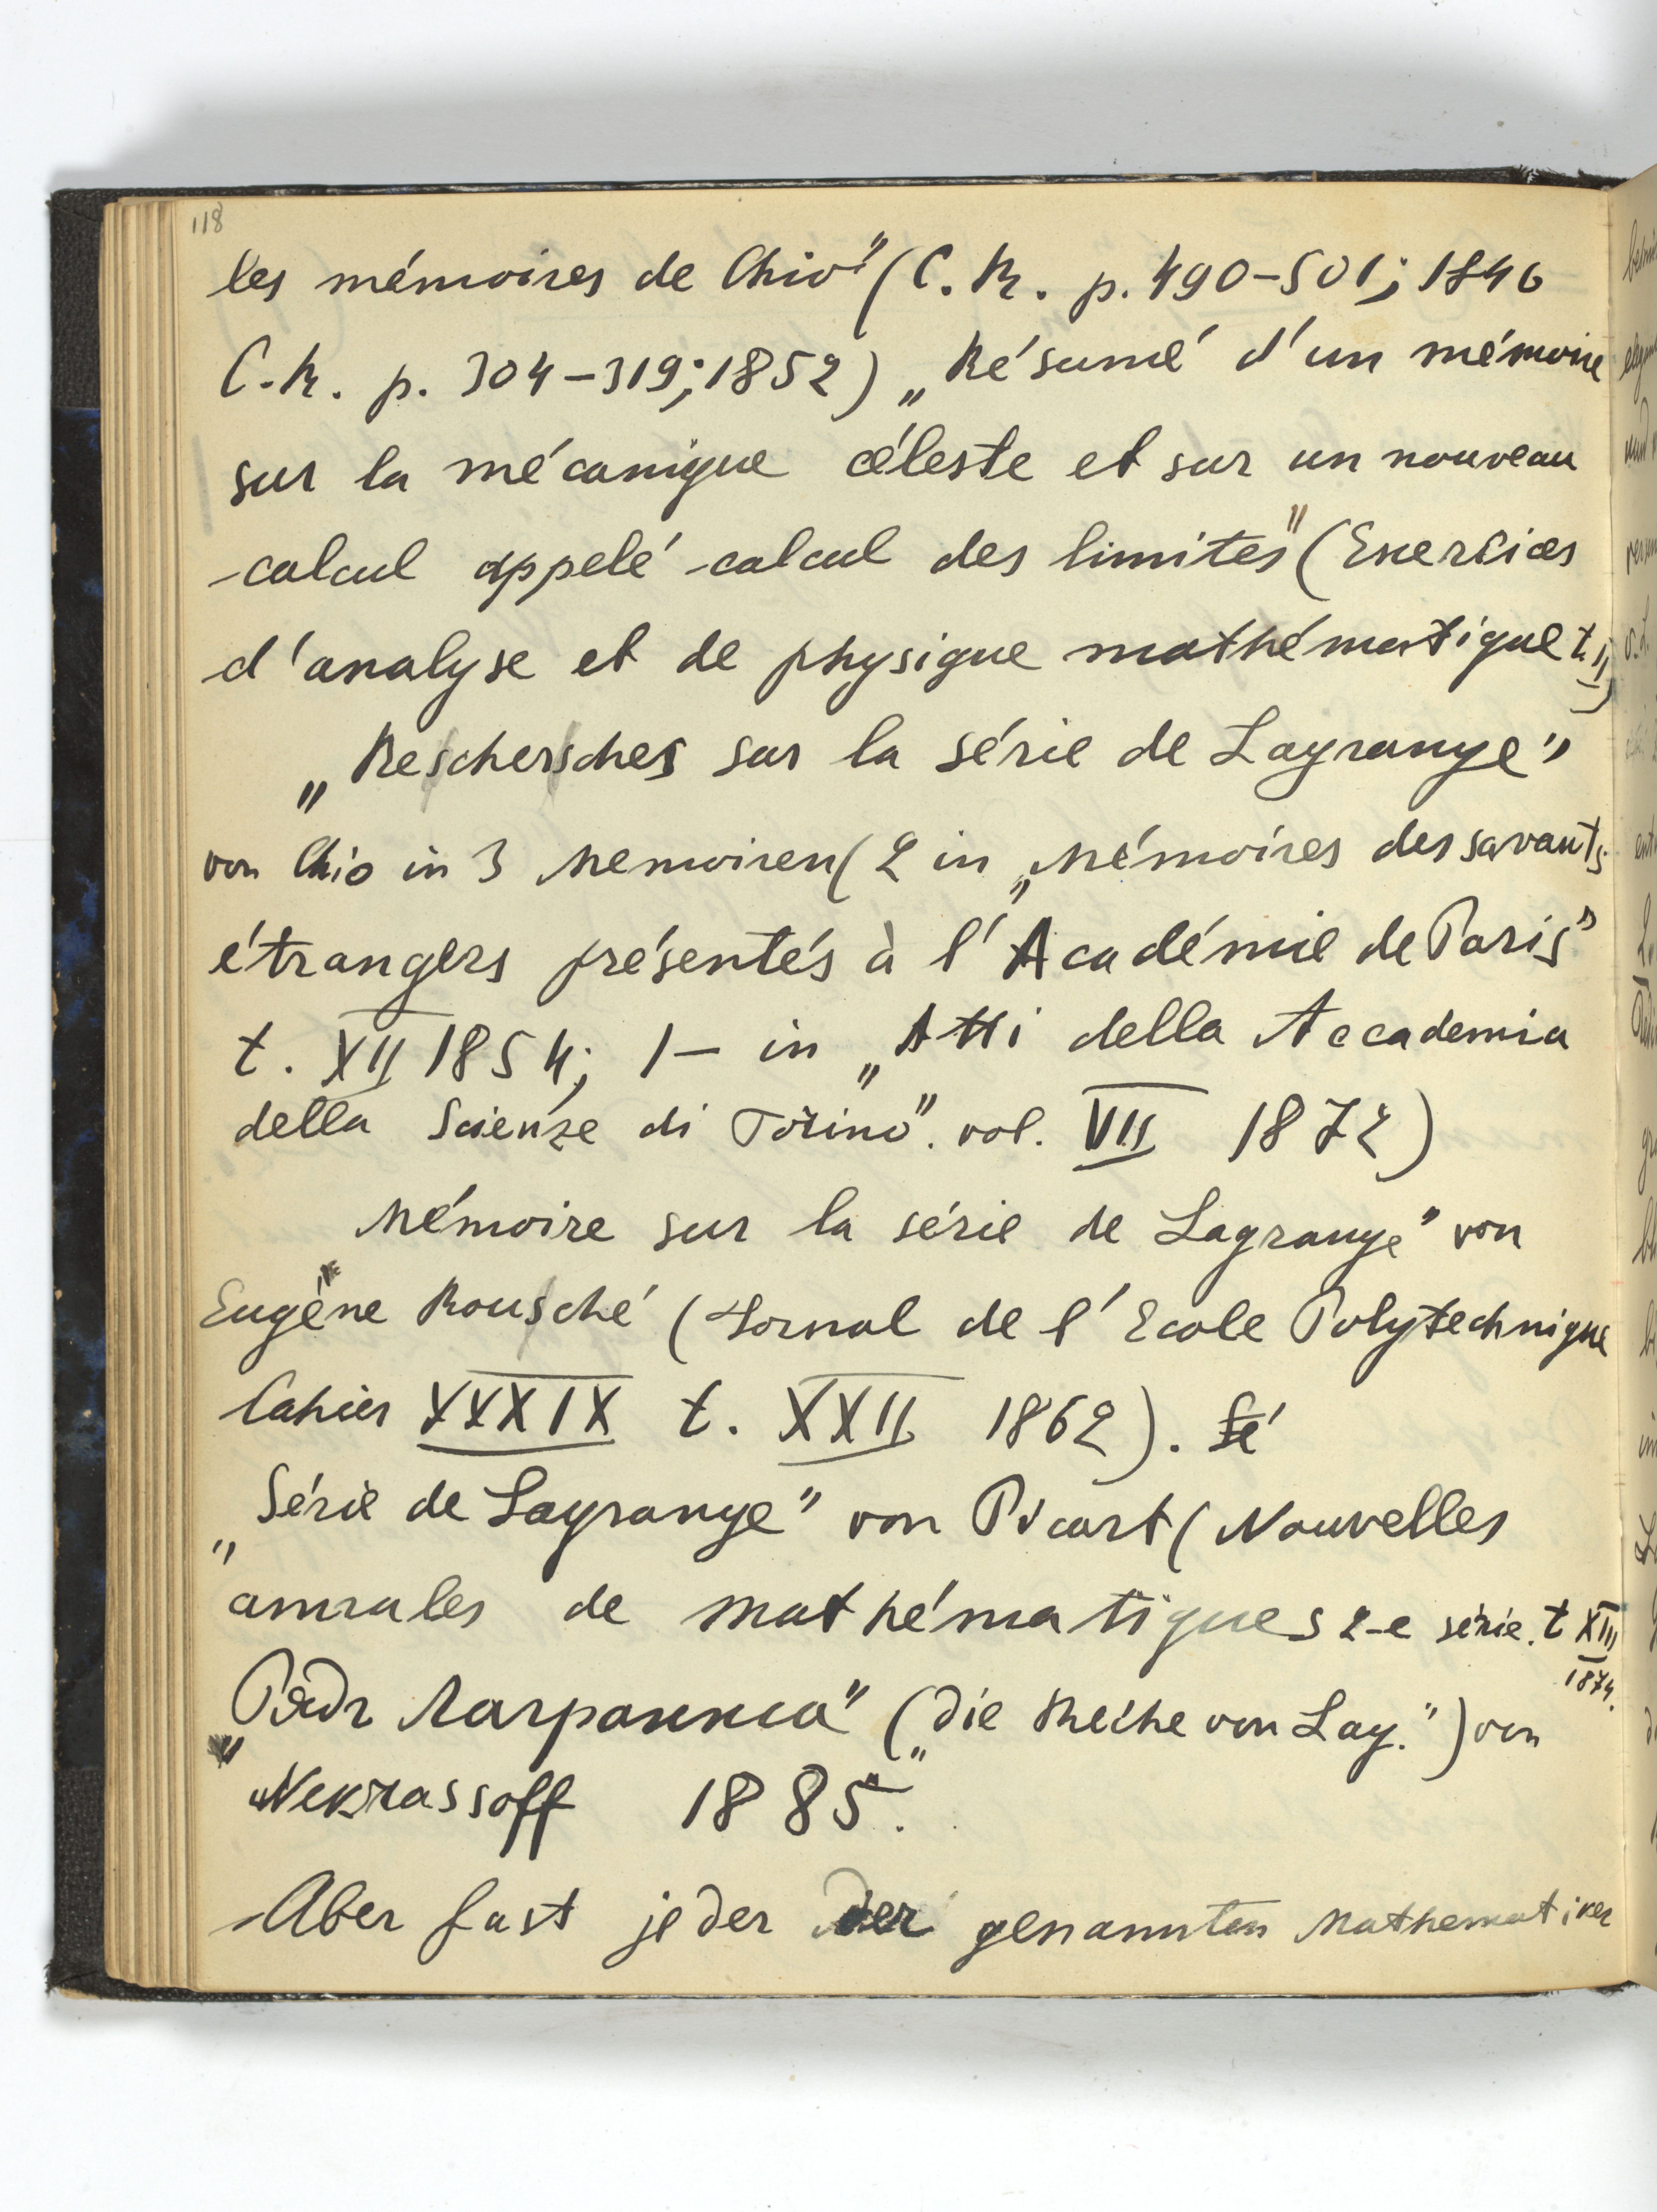 118
les mémoires de Chio" (C. R. p. 490-501; 1846
C. R. p. 304-319; 1852) „Résumé d'un mémoire
sur la mécanique céleste et sur un nouveau
calcul appelé calcul des limites" (Exercices
d'analyse et de physique mathématique t. II)
„Recherches sur la série de Lagrange"
von Chio in 3 Memoiren (2 in „Mémoires des savants
étrangers présentés à l'Académie de Paris"
t. XII 1854; 1- in „Atti della Accademia
della Scienze di Torino". vol. VII 1872)
„Mémoire sur la série de Lagrange" von
Eugène Rouché (Jornal de l'Ecole Polytechnique
Cahier XXXIX t. XXII 1862). Sé
„Série de Lagrange" von Picart (Nouvelles
annales de mathématiques 2-e série. t XIII
1874.
„Рядъ Лагранжа" („Die Reihe von Lag.") von
Nekrassoff 1885.
Aber fast jeder der genannten Mathematiker